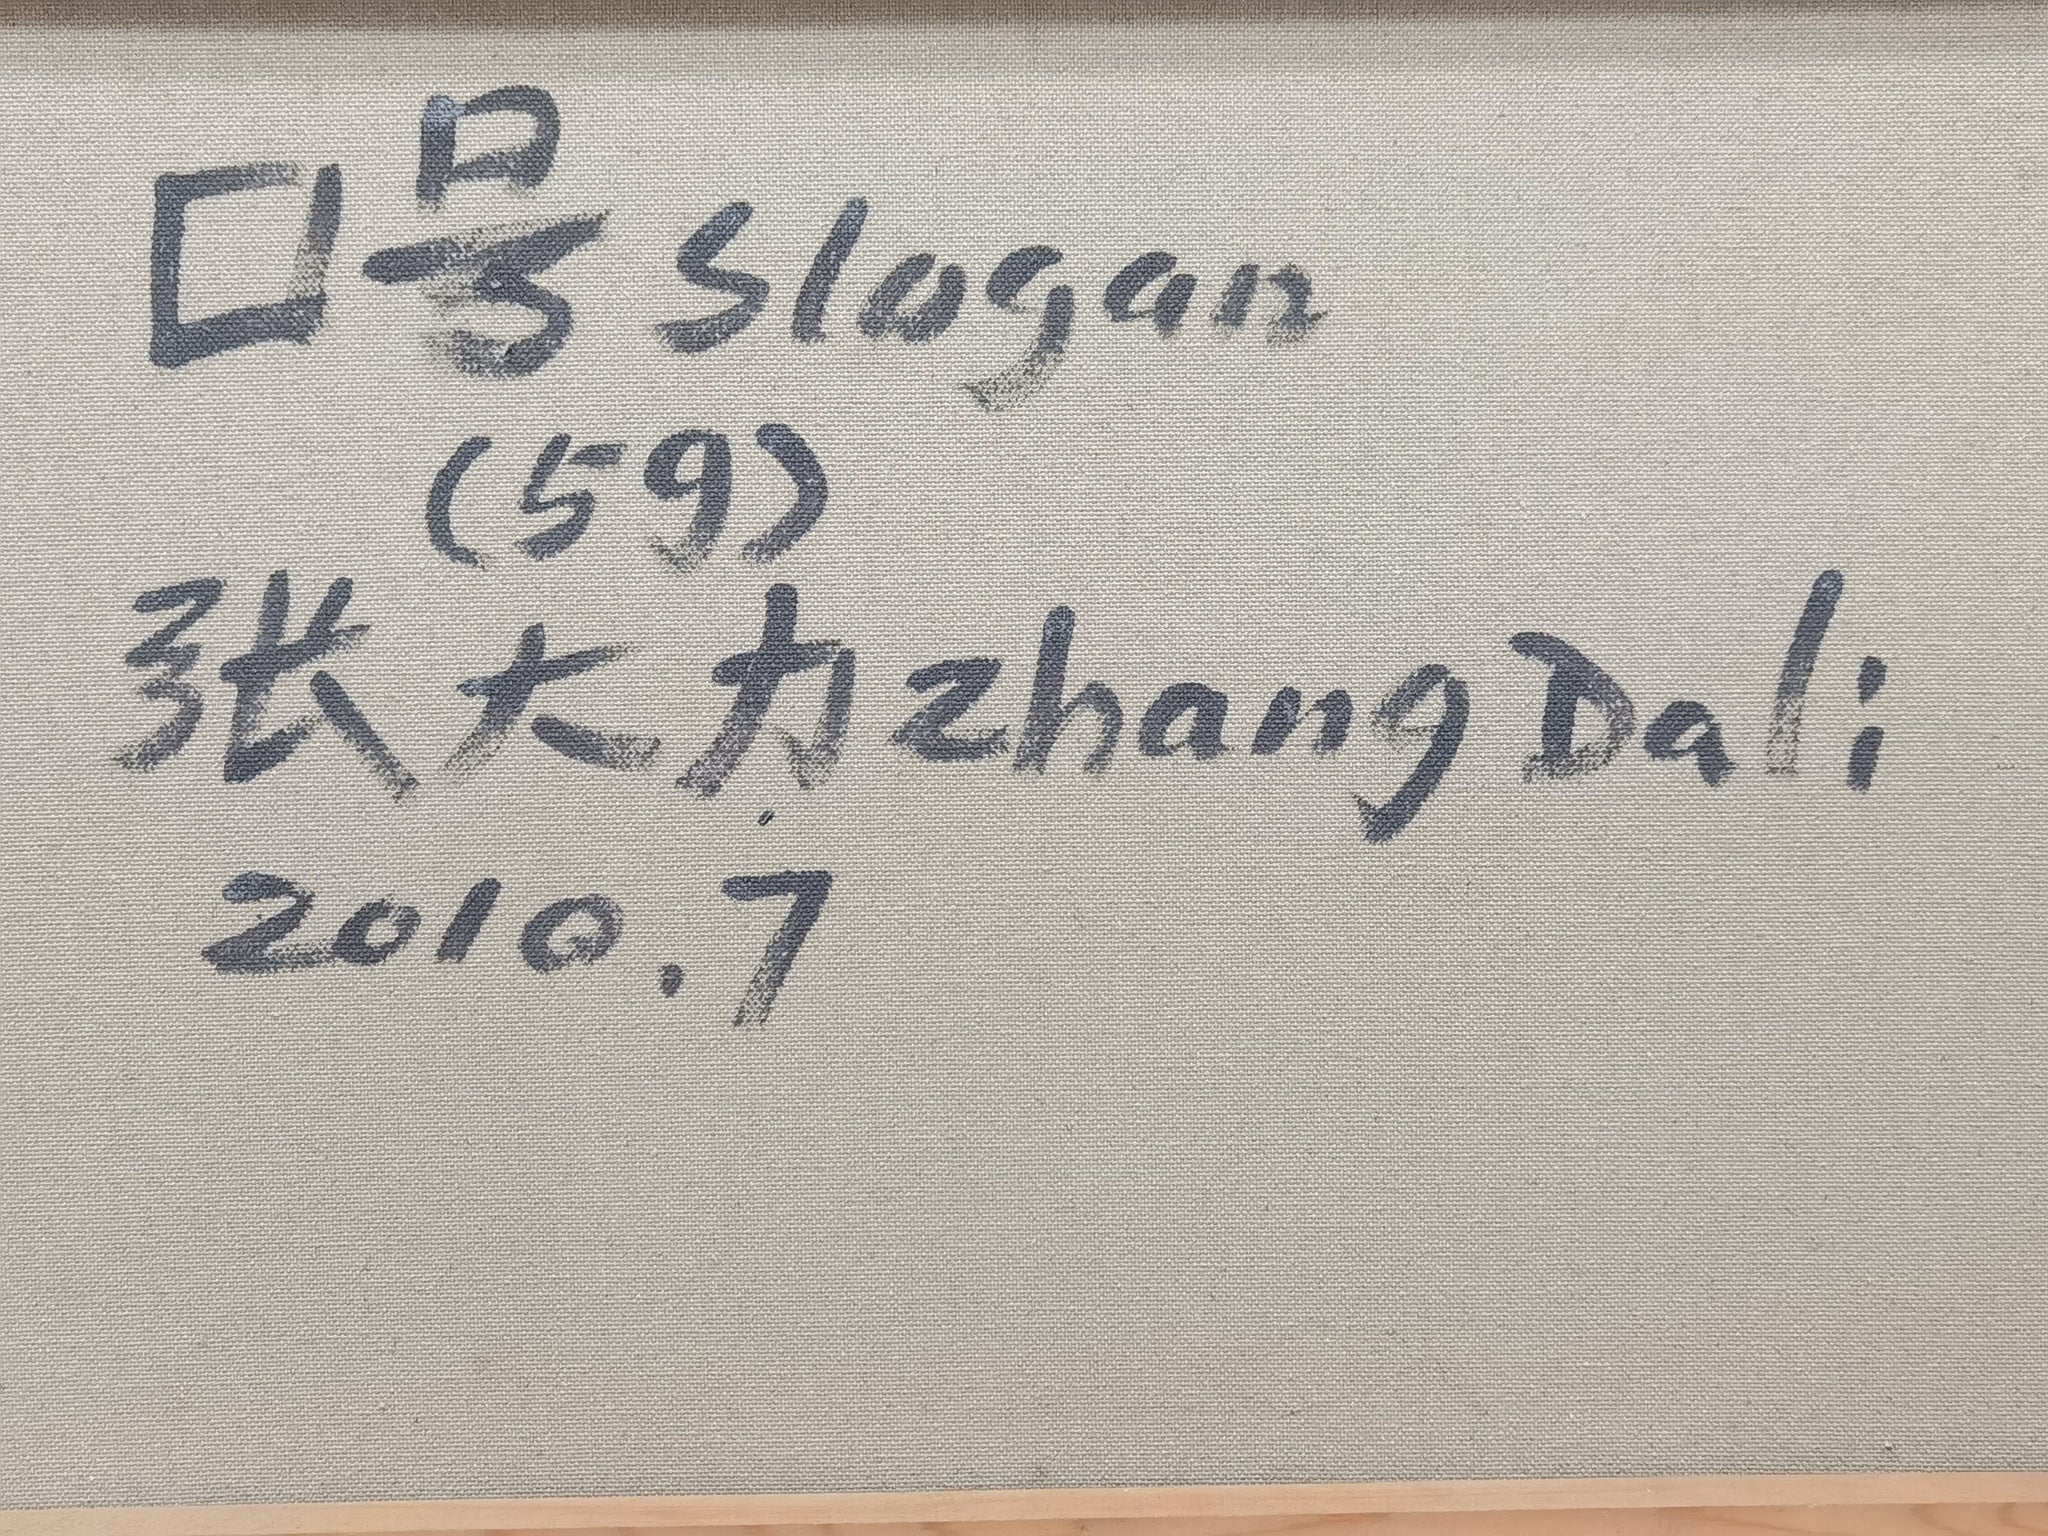 口号 Slogan
(59)
张大力 zhang Dali
2010.7